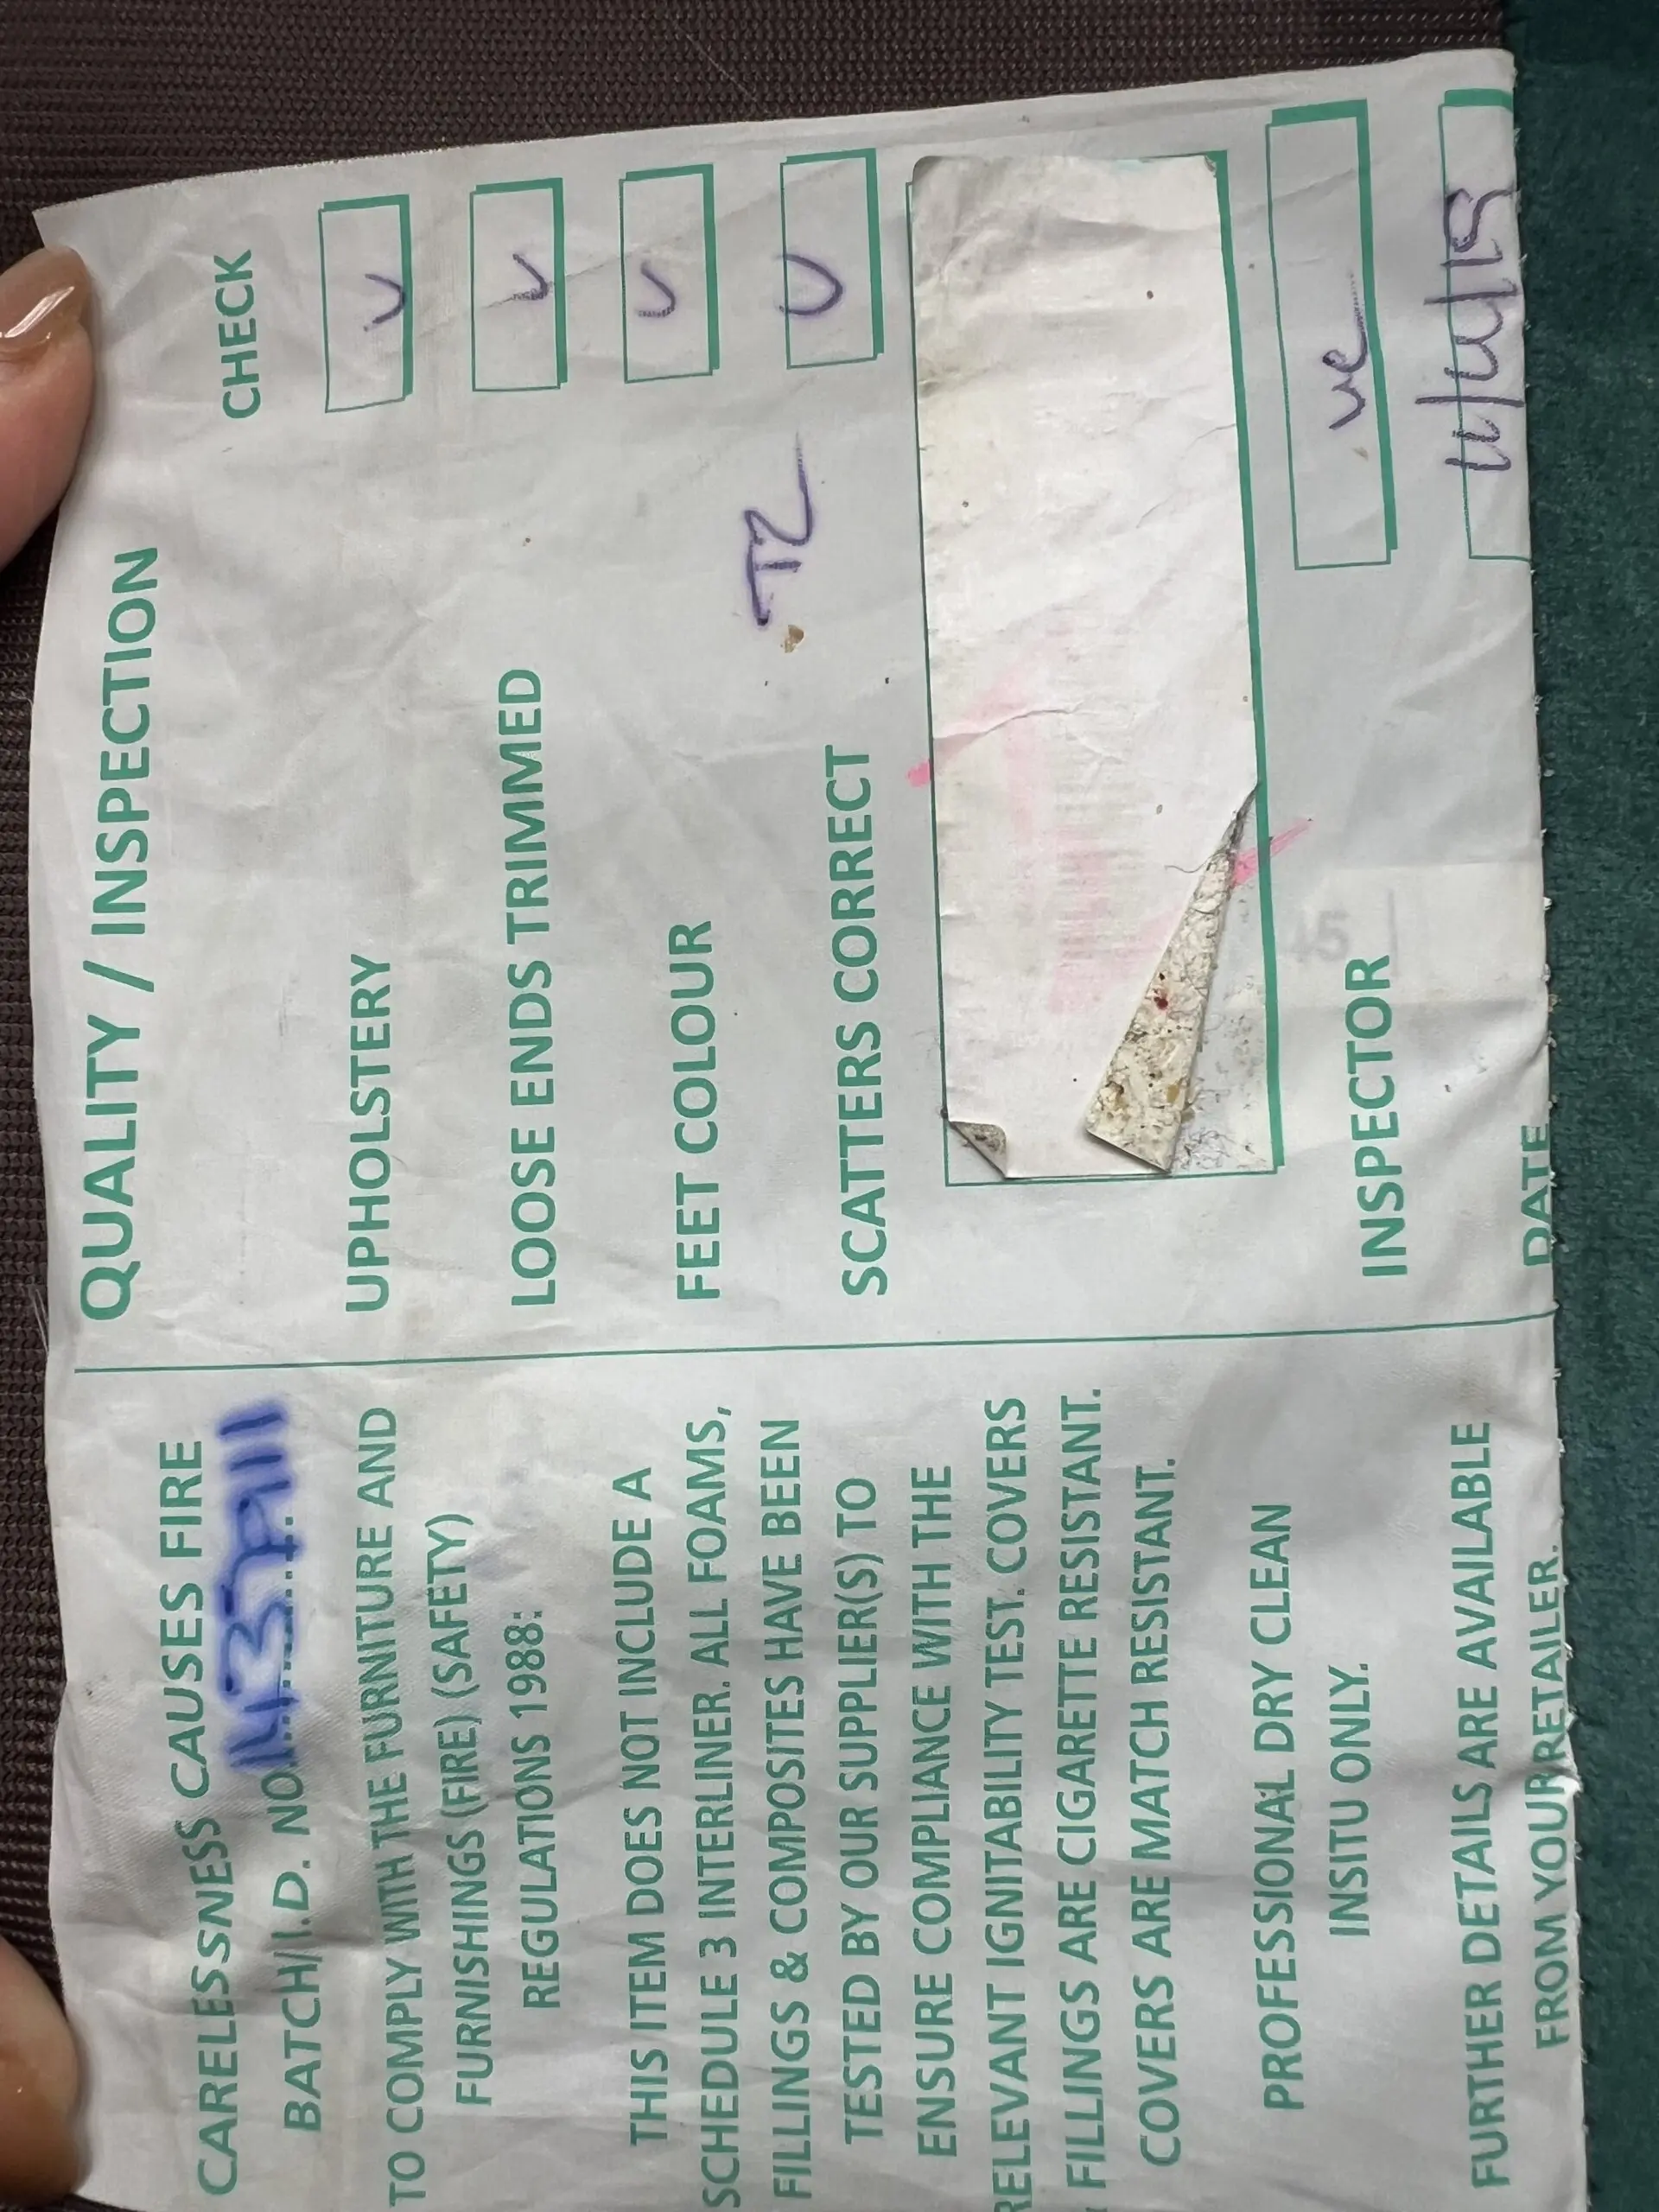 CARELESSNESS CAUSES FIRE
BATCH/I.D. NO.
TO COMPLY WITH THE FURNITURE AND
FURNISHINGS (FIRE) (SAFETY)
REGULATIONS 1988:
THIS ITEM DOES NOT INCLUDE A
SCHEDULE 3 INTERLINER. ALL FOAMS,
FILLINGS & COMPOSITES HAVE BEEN
TESTED BY OUR SUPPLIER(S) TO
ENSURE COMPLIANCE WITH THE
RELEVANT IGNITABILITY TEST. COVERS
FILLINGS ARE CIGARETTE RESISTANT.
COVERS ARE MATCH RESISTANT.
PROFESSIONAL DRY CLEAN
INSITU ONLY.
FURTHER DETAILS ARE AVAILABLE
FROM YOUR RETAILER.
QUALITY / INSPECTION
CHECK
UPHOLSTERY
LOOSE ENDS TRIMMED
FEET COLOUR
SCATTERS CORRECT
INSPECTOR
DATE